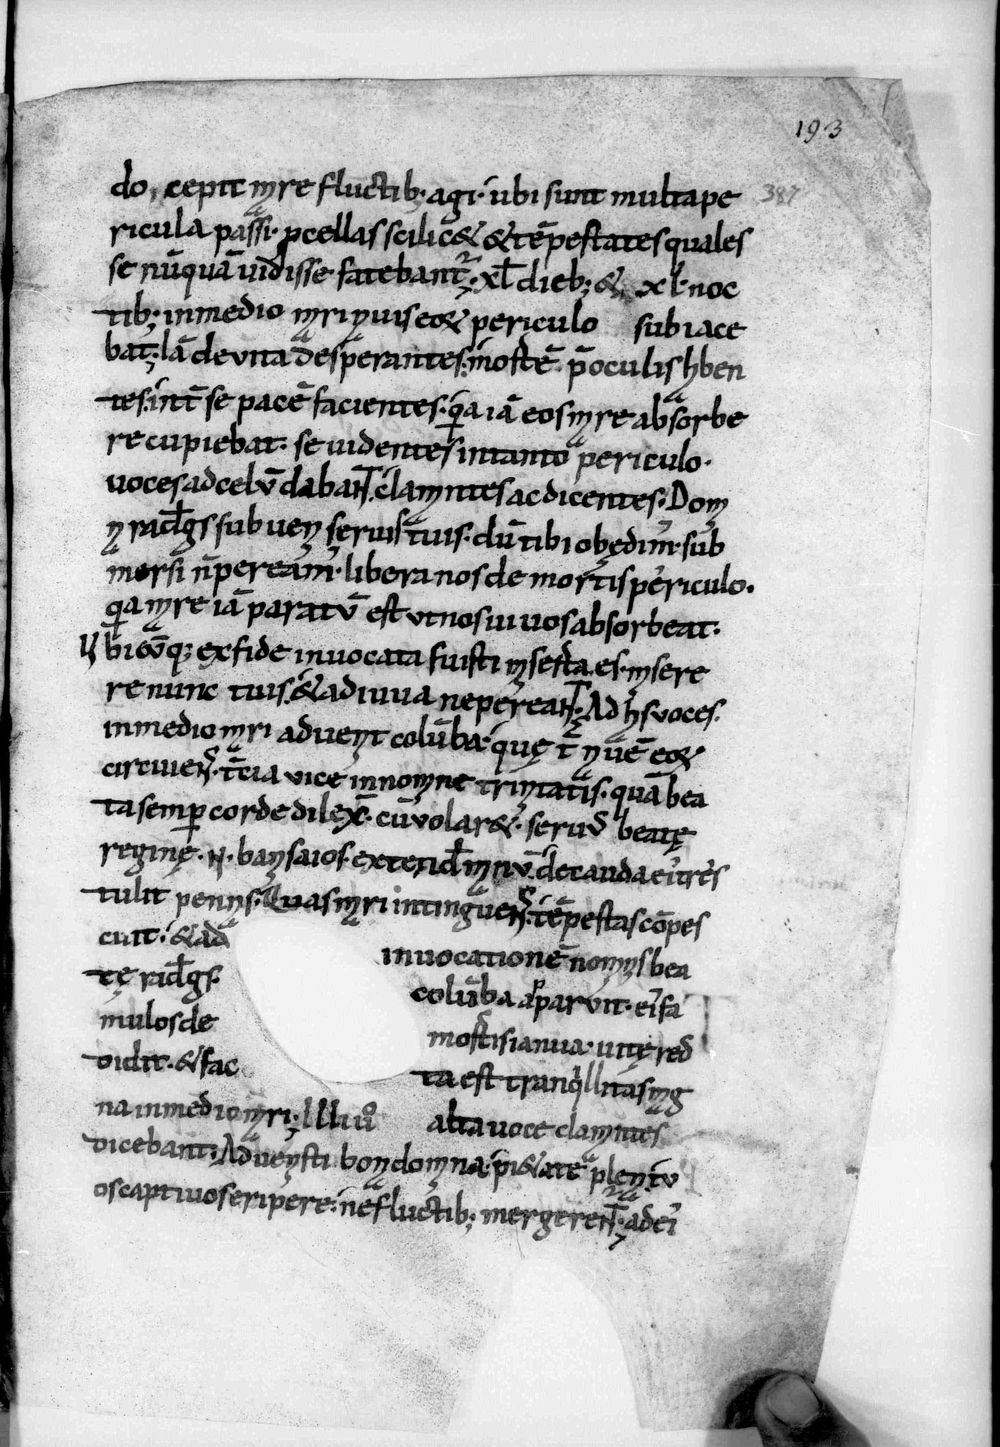 193
do, cepit mare fluctib; agi. ubi sunt multa pe 387
ricula passi. ꝓcellas scilic& &tēpestates quales
se nūquā uidisse fatebant᷑. xl dieb; & xl. noc
tib; in medio mari nauis eo& periculo subiace
bat; Iā de uita desperantes. mortē p̄ oculis haben
tes. int̄ se pacē facientes. qa iā eos mare absorbe
re cupiebat. se uidentes in tanto periculo.
uoces ad celū dabant. clamantes ac dicentes. Domi
na radgs subueni seruis tuis. dū tibi obędim᷒. sub
mersi n̄ peream᷒. libera nos de mortis periculo.
qa mare iā paratū est ut nos uiuos absorbeat.
Ubicūq; ex fide inuocata fuisti miserta es. misere
re nunc tuis. & adiuua ne pereant. Ad has uoces.
in medio mari aduenit colūba. quę t̄ nauē eo&
circuiens. t̄cia uice in nomine trinitatis. quā bea
ta semꝑ corde dilex̄. cū uolar&. seruus beatę
reginę. N. banisaios. extendit manū. de cauda ei tres
tulit pennis. Quas mari intinguens. tēpestas cōpes
cuit. & ad inuocationē nominis bea
tę radgs. colūba apparuit. ei fa
mulos de mortis ianua. uitę red
didit. & fac ta est tranqllitas mag
na in medio mari; Illi uº alta uoce clamantes
dicebant. Aduenisti bona domina. pi&ate plena. tu
os captiuos eripere. ne fluctib; mergerent᷑. ad ei